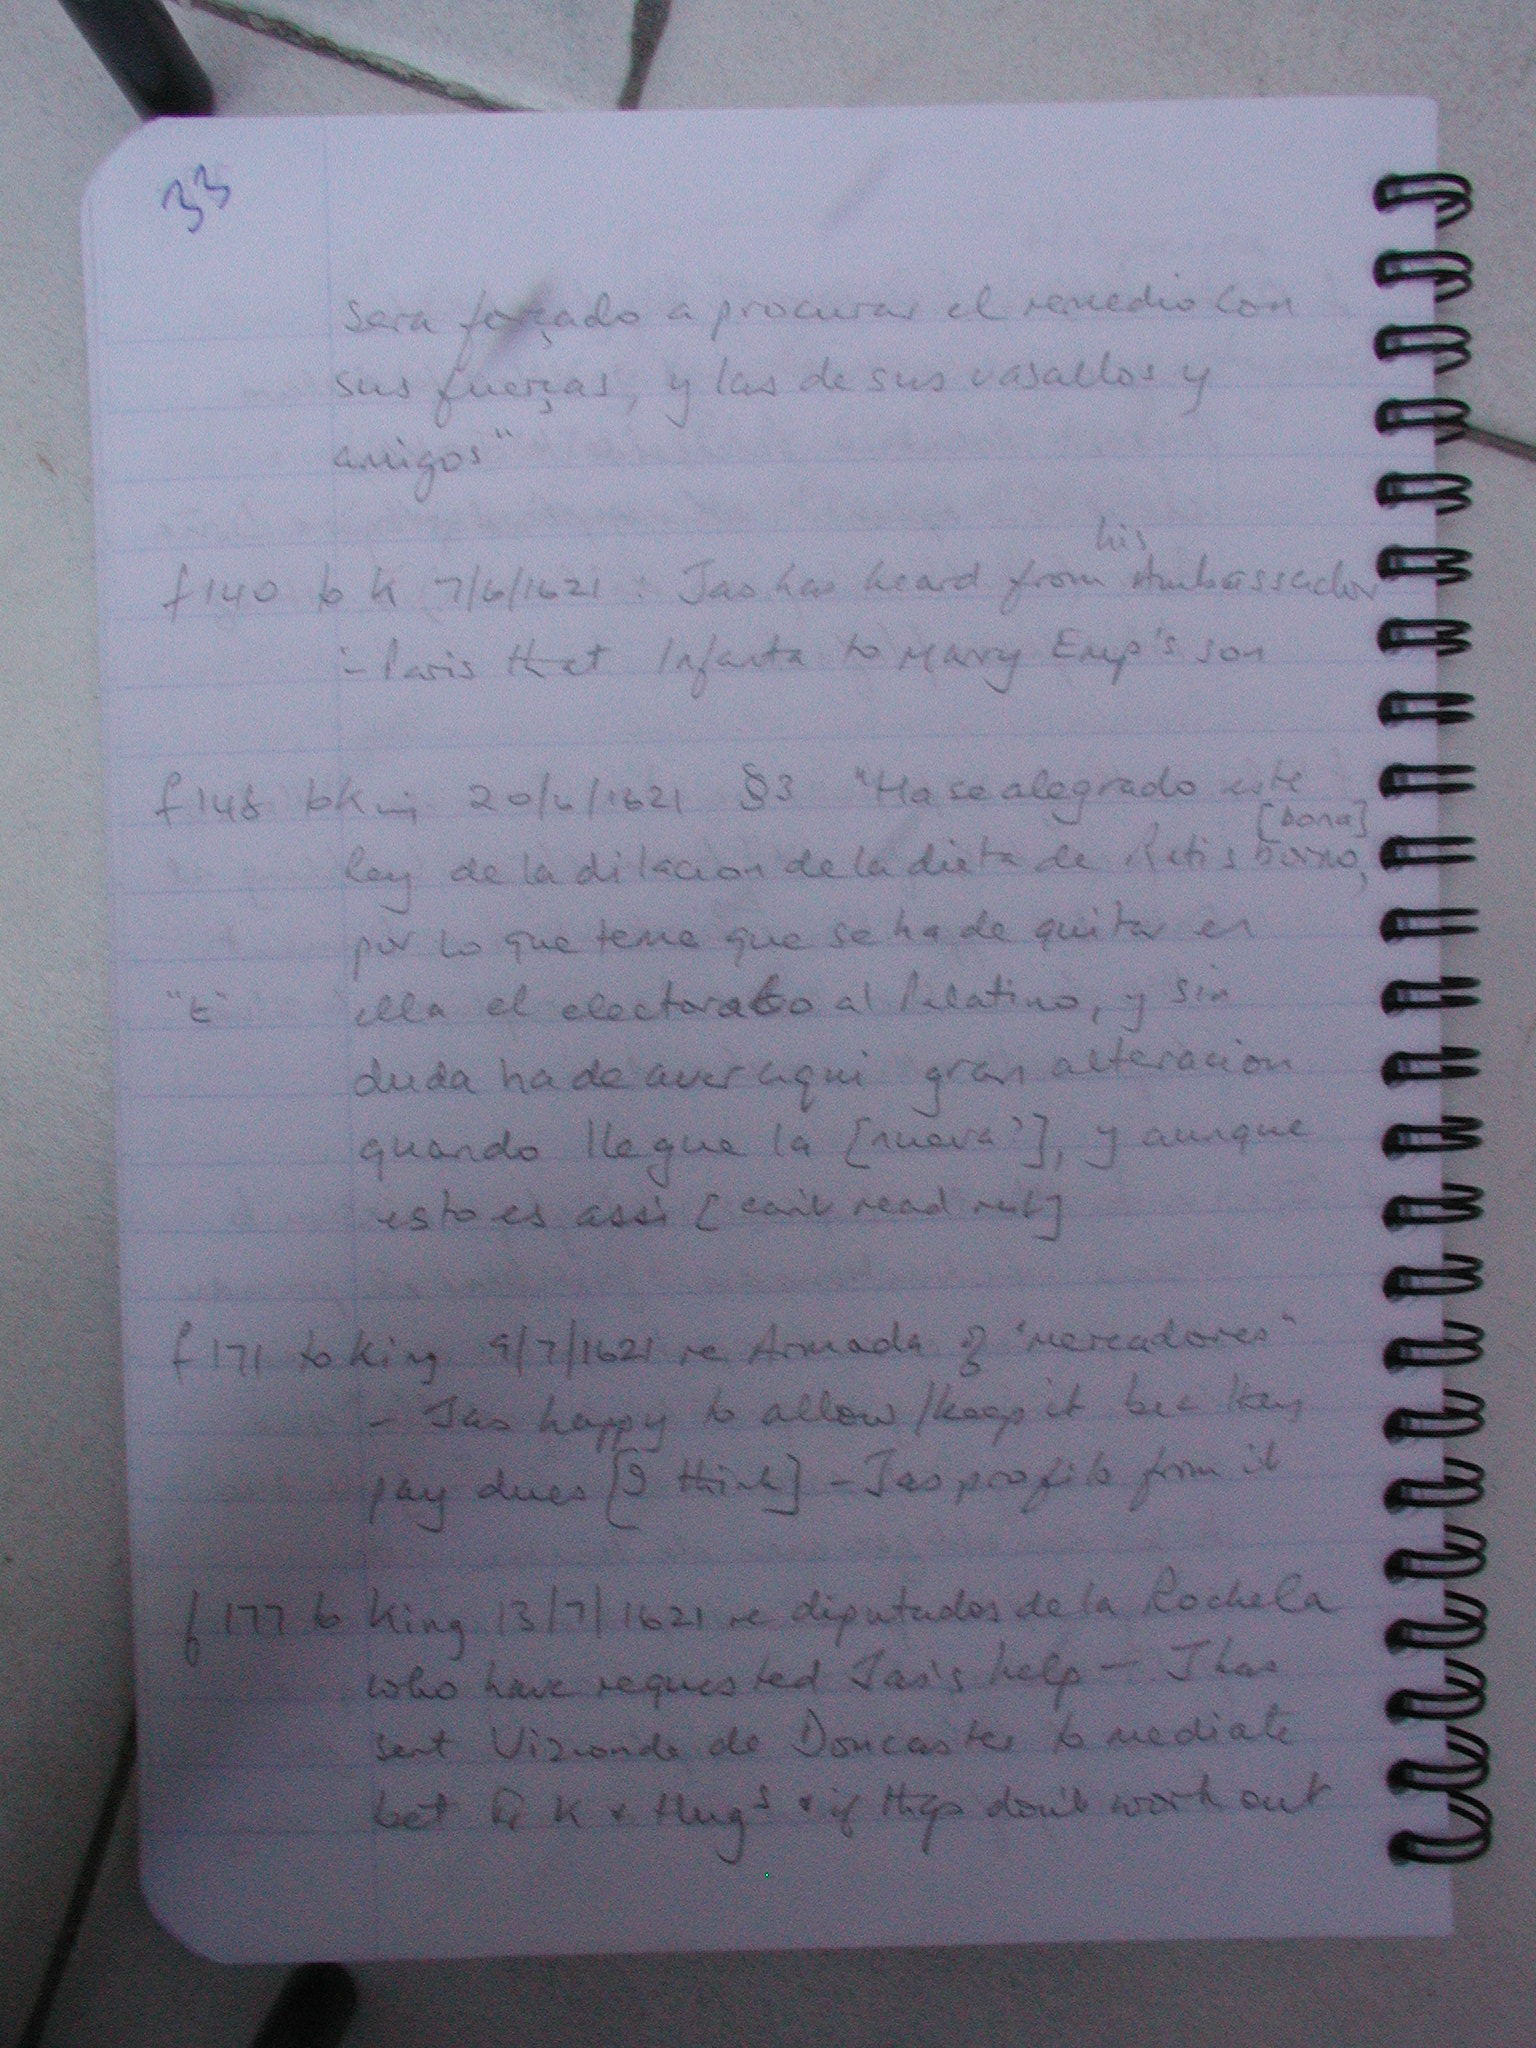 33
sera forçado a procurar el remedio con
sus fuerças, y las de sus vasallos y
amigos"
his
f140 to K 7/6/1621 : Jas has heard from Ambassador
in Paris that Infanta to marry Emp's son
f148 to King 20/6/1621 §3 "Hase alegrado este
[bona]
Rey de la dilacion de la dieta de Ratisbono,
por lo que teme que se ha de quitar en
"t" ella el electorato al Palatino, y sin
duda ha de aver aqui gran alteracion
quando llegue la [nueva?], y aunque
esto es assi [can't read rest]
f171 to King 9/7/1621 re Armada of "mercadores"
- Jas happy to allow/keep it bec they
pay dues [I think] - Jas profits from it
f177 to King 13/7/1621 re diputados de la Rochela
who have requested Jas's help - J has
sent Vizconde de Doncaster to mediate
bet Fr K & Hugs & if things don't work out